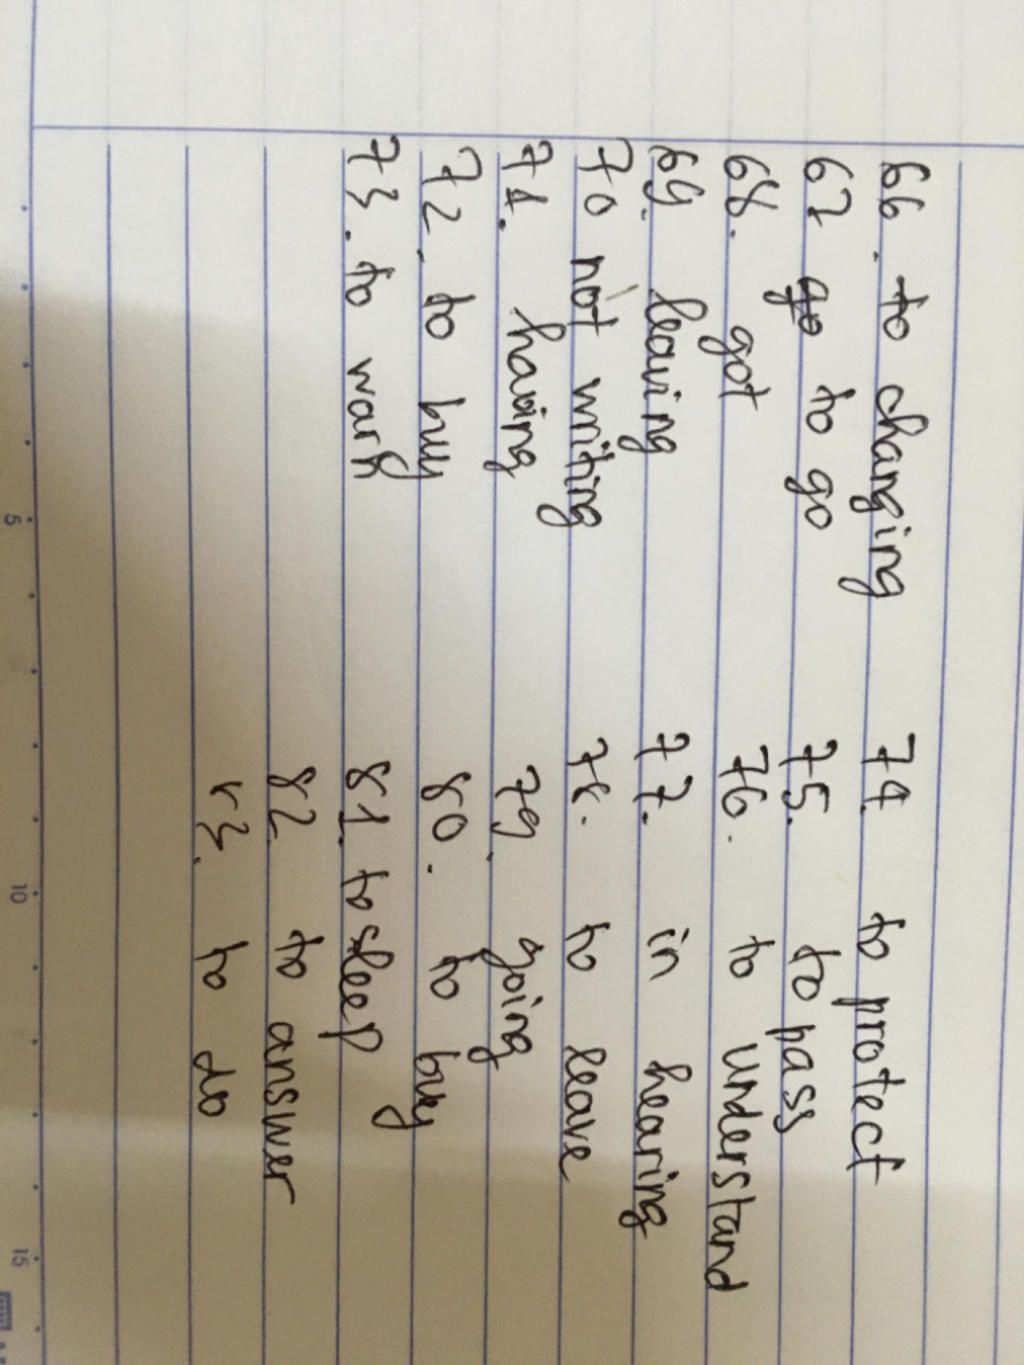 66. to changing
67 go to go
68. got
69. leaving
70 not writing
71. having
72. to buy
73. to wark
74 to protect
75. to pass
76. to understand
77. in hearing
78. to leave
79. going
80. to buy
81. to sleep
82 to answer
83. to do
5
10
15